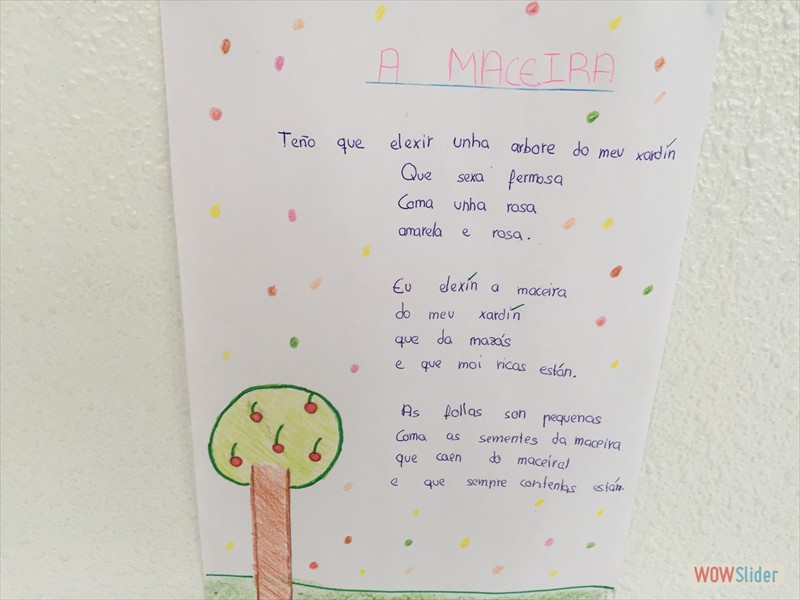 A MACEIRA
Teño que elexir unha arbore do meu xardín
Que sexa fermosa
Coma unha rosa
amarela e rosa.
Eu elexín a maceira
do meu xardín
que da mazás
e que moi ricas están.
As follas son pequenas
Coma as sementes da maceira
que caen do maceiral
e que sempre contentas están.
WOWSlider